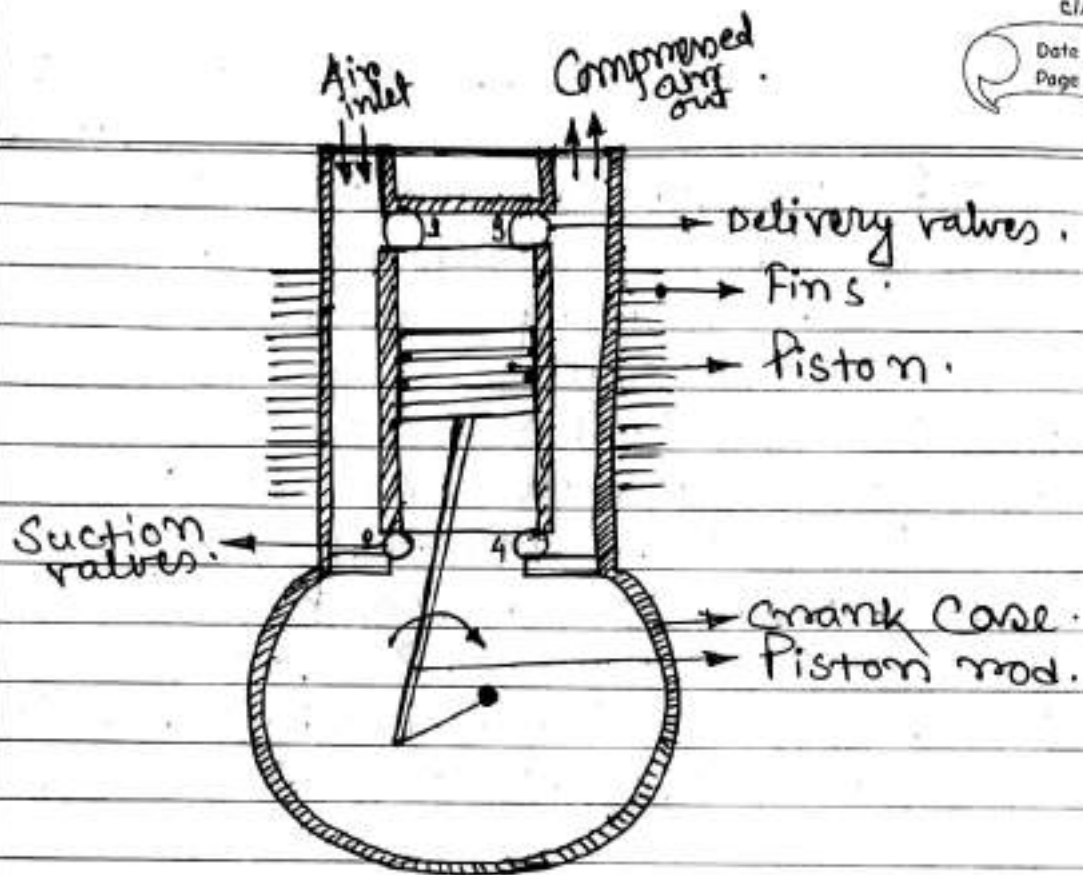 Date
Page
Air
inlet
Compressed
air
out
Delivery valves.
Fins.
Piston.
Suction
valves.
4
Crank Case.
Piston rod.